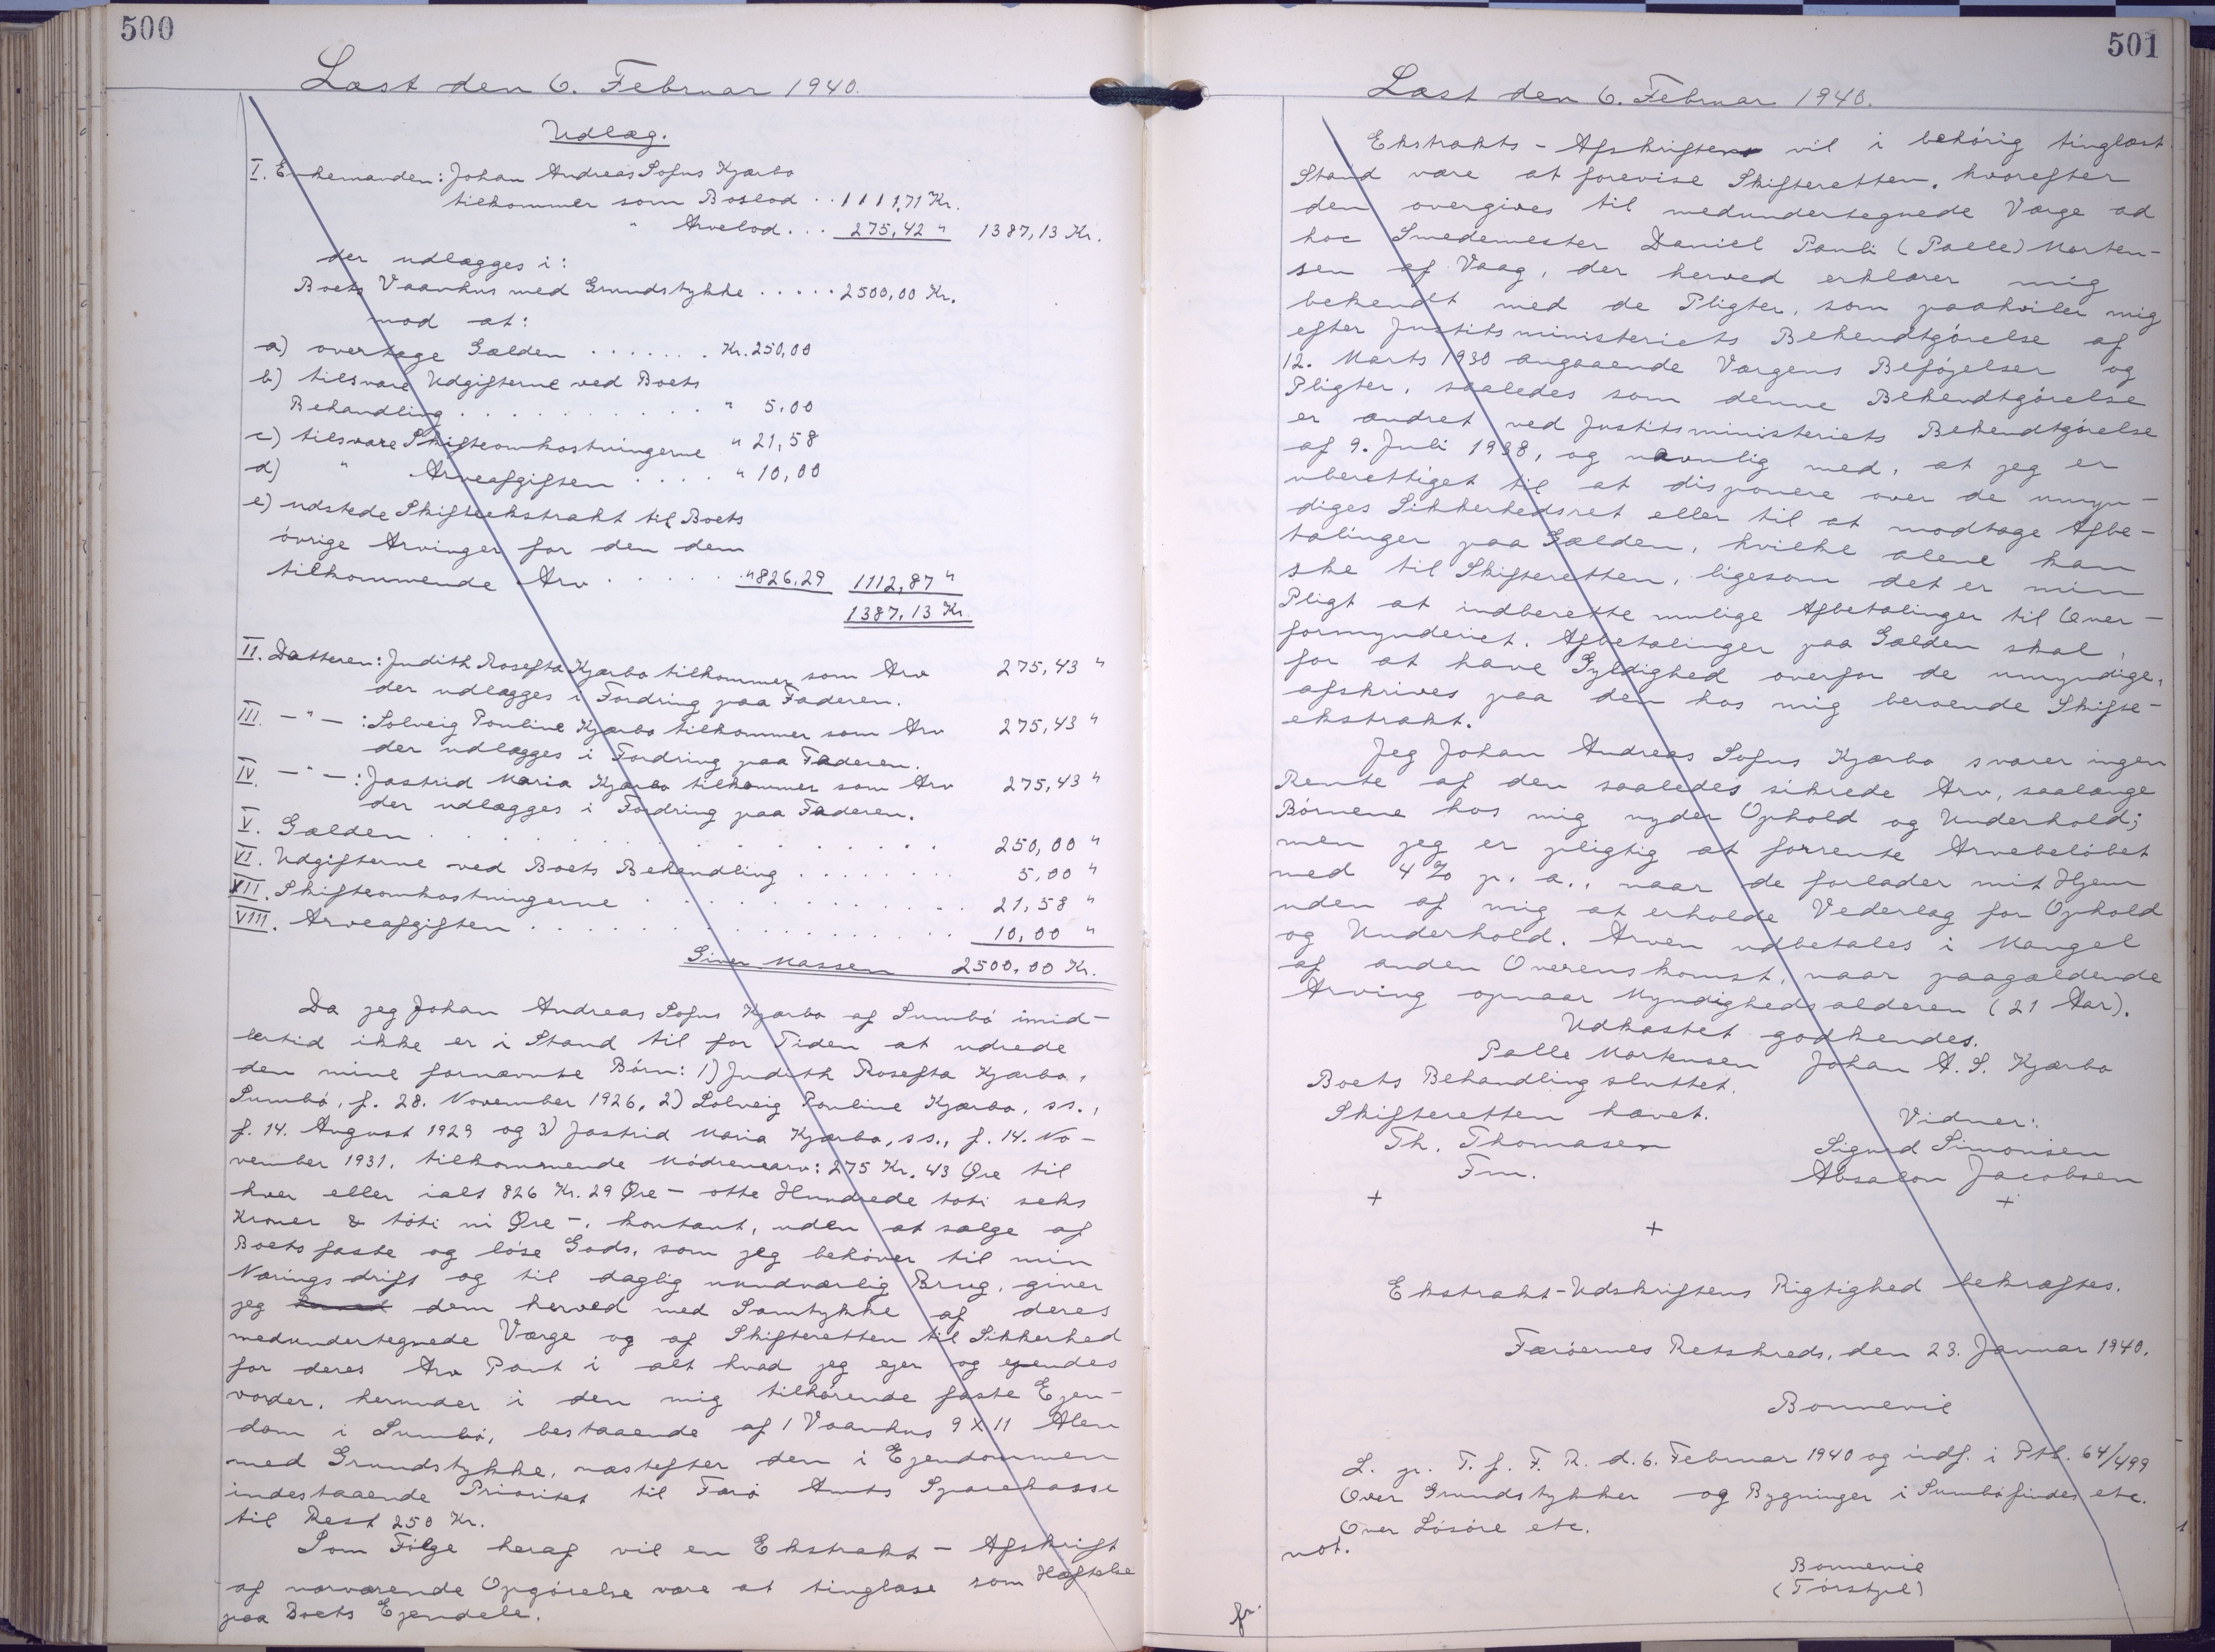 500
Læst den 6. Februar 1940.
Udlæg.
I. Enkemanden: Johan Andreas Sofus Kjærbo
tilkommer som Boslod .. 1111,71 Kr.
" Arvelod ... 275,42 " 1387,13 Kr.
der udlægges i:
Boets Vaanhus med Grundstykke ..... 2500,00 Kr.
mod at:
a) overtage Gælden ....... Kr. 250,00
b) tilsvare Udgifterne ved Boets
Behandling .......... " 5,00
c) tilsvare Skifteomkostningerne " 21,58
d) " Arveafgiften .... " 10,00
e) udstede Skifteekstrakt til Boets
øvrige Arvinger for den dem
tilkommende Arv ...... " 826,29 1112,87 "
1387,13 Kr.
II. Datteren: Judith Rosefta Kjærbo tilkommer som Arv 275,43 "
der udlægges i Fordring paa Faderen.
III. — " — : Solveig Pouline Kjærbo tilkommer som Arv 275,43 "
der udlægges i Fordring paa Faderen.
IV. — " — : Jastrid Maria Kjærbo tilkommer som Arv 275,43 "
der udlægges i Fordring paa Faderen.
V. Gælden .............. 250,00 "
VI. Udgifterne ved Boets Behandling ........ 5,00 "
VII. Skifteomkostningerne ............ 21,58 "
VIII. Arveafgiften ................ 10,00 "
Siver Massen 2500,00 Kr.
Da jeg Johan Andreas Sofus Kjærbo af Sumbø imid-
lertid ikke er i Stand til for Tiden at udrede
den mine fornævnte Børn: 1) Judith Rosefta Kjærbo,
Sumbø, f. 28. November 1926, 2) Solveig Pouline Kjærbo, ss.,
f. 14. August 1929 og 3) Jastrid Maria Kjærbo, ss., f. 14. No-
vember 1931, tilkommende Mødrenearv: 275 Kr. 43 Øre til
hver eller ialt 826 Kr. 29 Øre - otte Hundrede toti seks
Kroner & toti ni Øre -, kontant, uden at sælge af
Boets faste og løse Gods, som jeg behøver til min
Næringsdrift og til daglig uundværlig Brug, giver
jeg dem herved med Samtykke af deres
medundertegnede Værge og af Skifteretten til Sikkerhed
for deres Arv Pant i alt hvad jeg ejer og ejendes
vorder, herunder i den mig tilhørende faste Ejen-
dom i Sumbø, bestaaende af 1 Vaanhus 9 x 11 Alen
med Grundstykke, næstefter den i Ejendommen
indestaaende Prioritet til Færø Amts Sparekasse
til Rest 250 Kr.
Som Følge heraf vil en Ekstrakt - Afskrift
af nærværende Opgørelse være at tinglæse som Hæftelse
paa Boets Ejendele.
501
Læst den 6. Februar 1940.
Ekstrakts - Afskriften vil i behørig tinglæst
Stand være at forevise Skifteretten, hvorefter
den overgives til medundertegnede Værge ad
hoc Smedemester Daniel Pauli (Palle) Morten-
sen af Vaag, der herved erklærer mig
bekendt med de Pligter, som paahviler mig
efter Justitsministeriets Bekendtgørelse af
12. Marts 1930 angaaende Værgens Beføjelser og
Pligter, saaledes som denne Bekendtgørelse
er ændret ved Justitsministeriets Bekendtgørelse
af 9. Juli 1938, og navnlig med, at jeg er
uberettiget til at disponere over de umyn-
diges Sikkerhedsret eller til at modtage Afbe-
talinger paa Gælden, hvilke alene kan
ske til Skifteretten, ligesom det er min
Pligt at indberette mulige Afbetalinger til Over-
formynderiet. Afbetalinger paa Gælden skal,
for at have Gyldighed overfor de umyndige,
afskrives paa den hos mig beroende Skifte-
ekstrakt.
Jeg Johan Andreas Sofus Kjærbo svarer ingen
Rente af den saaledes sikrede Arv, saalænge
Børnene hos mig nyder Ophold og Underhold;
men jeg er pligtig at forrente Arvebeløbet
med 4 % p. a., naar de forlader mit Hjem
uden af mig at erholde Vederlag for Ophold
og Underhold. Arven udbetales i Mangel
af anden Overenskomst, naar paagældende
Arving opnaar Myndighedsalderen (21 Aar).
Udkastet godkendes.
Palle Mortensen Johan A. S. Kjærbo
Boets Behandling sluttet.
Skifteretten hævet. Vidner:
Th. Thomasen Sigurd Simonsen
Fm. Absalon Jacobsen
+ + +
Ekstrakt-Udskriftens Rigtighed bekræftes.
Færøernes Retskreds, den 23. Januar 1940.
Bonnevie
L. p. T. f. F. R. d. 6. Februar 1940 og indf. i Ptb. 64/499
Over Grundstykker og Bygninger i Sumbø findes etc.
Over Løsøre etc.
not.
Bonnevie
(Tórstjel)
fr.